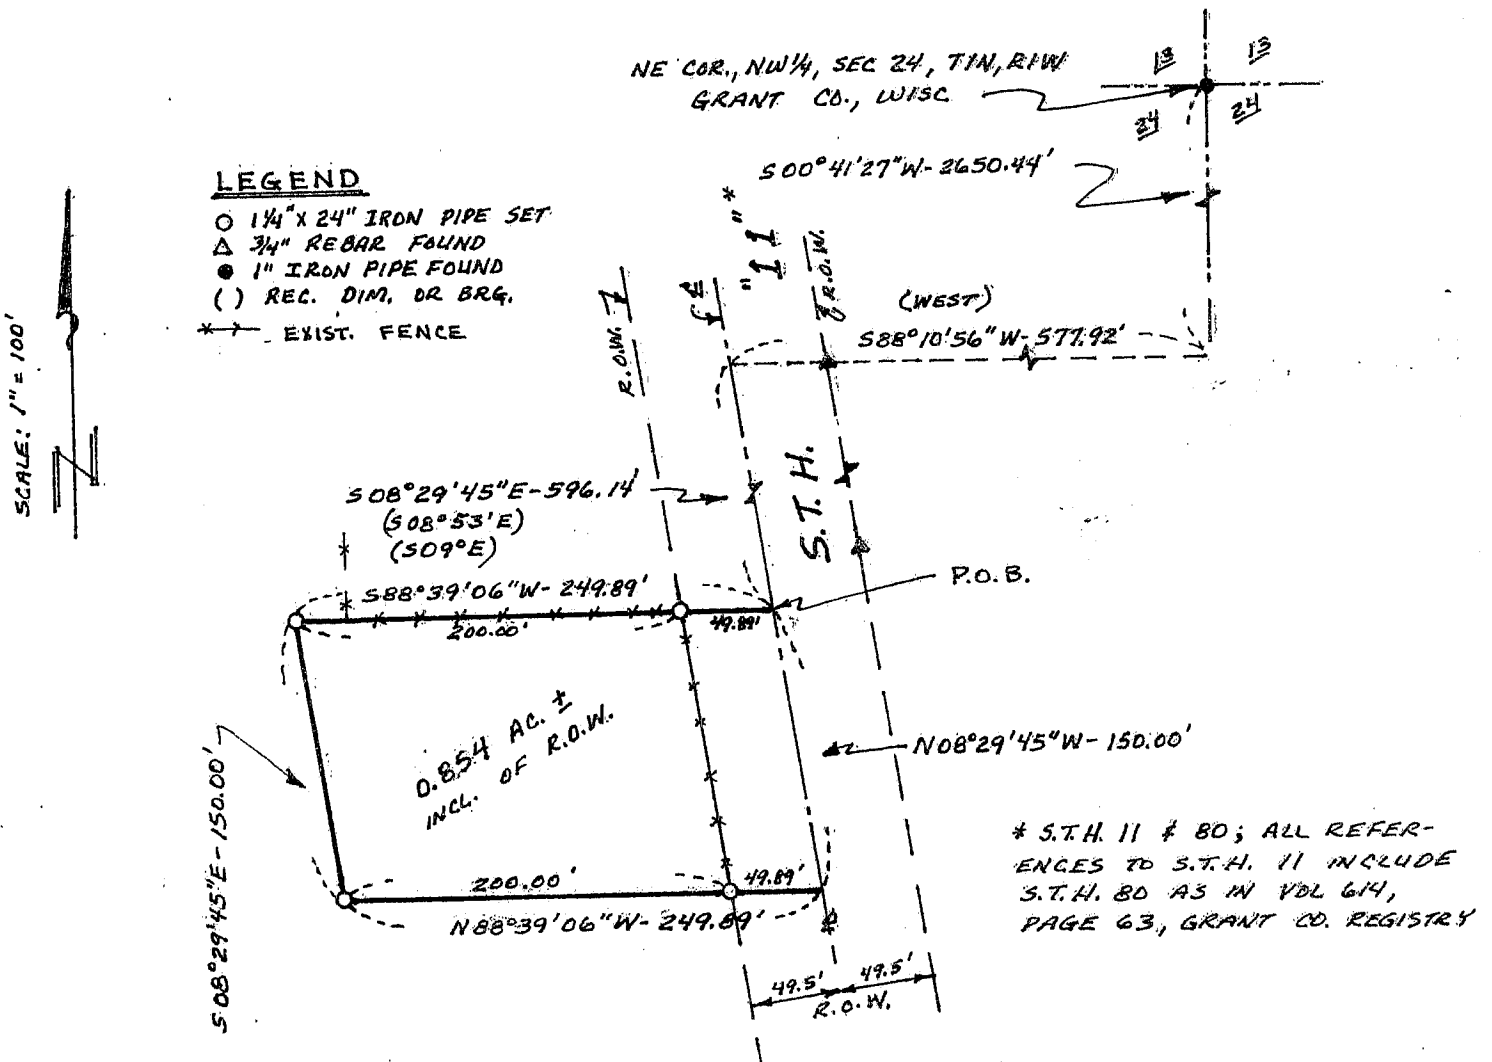 NE COR., NW 1/4, SEC 24, T1N, R1W
GRANT CO., WISC
13
13
24
24
S00°41'27"W-2650.44'
LEGEND
1 1/4" X 24" IRON PIPE SET
3/4" REBAR FOUND
1" IRON PIPE FOUND
( ) REC. DIM. OR BRG.
EXIST. FENCE
SCALE: 1"=100'
N
R.O.W.
"11"*
R.O.W.
(WEST)
S88°10'56"W-577.92'
S.T.H.
S08°29'45"E-596.14'
(S08°53'E)
(S09°E)
P.O.B.
S88°39'06"W-249.89'
200.00'
49.89'
0.854 AC. ±
INCL. OF R.O.W.
S08°29'45"E-150.00'
N08°29'45"W-150.00'
200.00'
49.89'
N88°39'06"W-249.89'
* S.T.H. 11 & 80; ALL REFER-
ENCES TO S.T.H. 11 INCLUDE
S.T.H. 80 AS IN VOL 614,
PAGE 63, GRANT CO. REGISTRY
49.5'
49.5'
R.O.W.